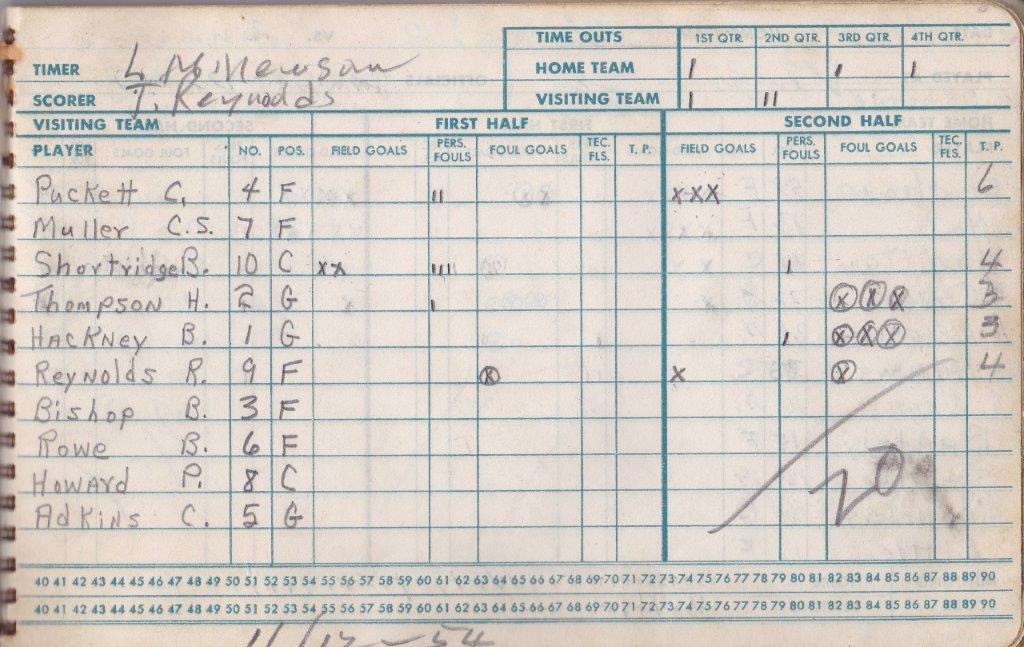 TIME OUTS 1ST QTR. 2ND QTR. 3RD QTR. 4TH QTR.
TIMER L. M. Newsom HOME TEAM I I I
SCORER T. Reynolds VISITING TEAM I II
VISITING TEAM FIRST HALF SECOND HALF
PLAYER NO. POS. FIELD GOALS PERS. FOULS FOUL GOALS TEC. FLS. T. P. FIELD GOALS PERS. FOULS FOUL GOALS TEC. FLS. T. P.
Puckett C. 4 F II XXX 6
Muller C.S. 7 F
Shortridge B. 10 C XX IIII I 4
Thompson H. 2 G I ⓧⓧⓧ 3
Hackney B. 1 G I ⓧⓧⓧ 3
Reynolds R. 9 F ⓧ X ⓧ 4
Bishop B. 3 F
Rowe B. 6 F
Howard P. 8 C 20
Adkins C. 5 G
40 41 42 43 44 45 46 47 48 49 50 51 52 53 54 55 56 57 58 59 60 61 62 63 64 65 66 67 68 69 70 71 72 73 74 75 76 77 78 79 80 81 82 83 84 85 86 87 88 89 90
40 41 42 43 44 45 46 47 48 49 50 51 52 53 54 55 56 57 58 59 60 61 62 63 64 65 66 67 68 69 70 71 72 73 74 75 76 77 78 79 80 81 82 83 84 85 86 87 88 89 90
11/12-54